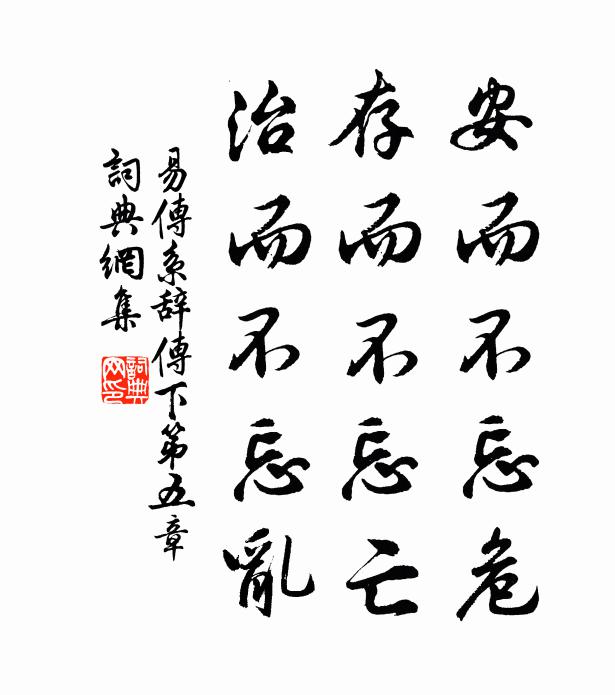 安而不忘危
存而不忘亡
治而不忘亂
易傳系辞傳下第五章
詞典網集
詞典
网印